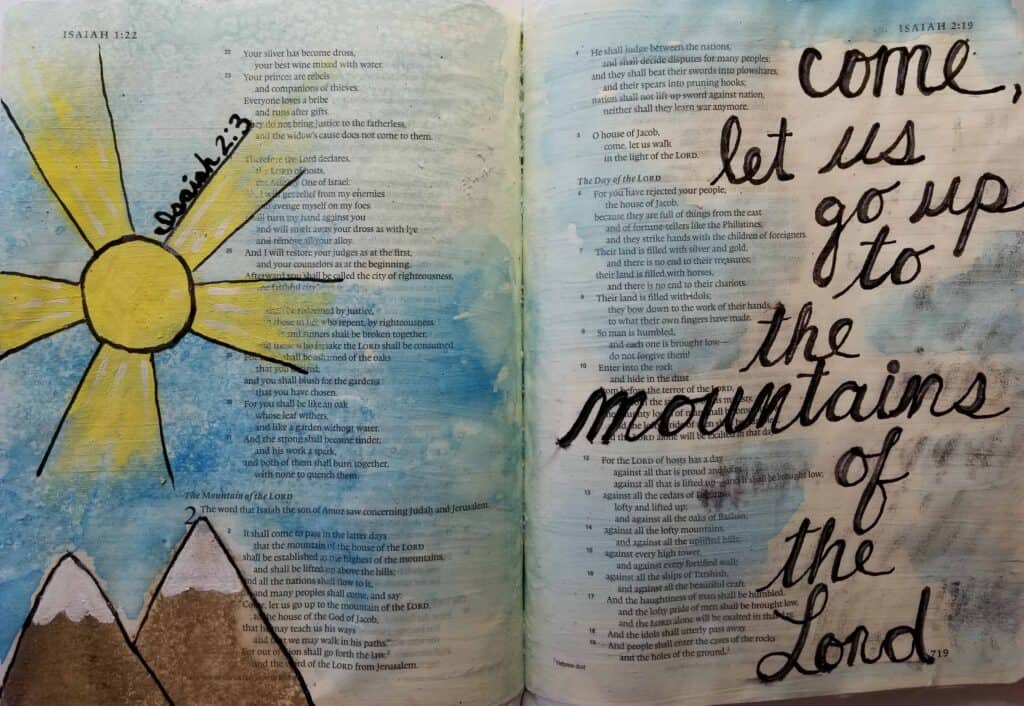 ISAIAH 1:22
22 Your silver has become dross,
your best wine mixed with water.
23 Your princes are rebels
and companions of thieves.
Everyone loves a bribe
and runs after gifts.
do not bring justice to the fatherless,
and the widow's cause does not come to them.
Isaiah 2:3
Therefore the Lord declares,
the LORD of hosts,
the One of Israel:
get relief from my enemies
avenge myself on my foes.
turn my hand against you
and will smelt away your dross as with lye
and remove all your alloy.
26 And I will restore your judges as at the first,
and your counselors as at the beginning.
Afterward you shall be called the city of righteousness,
faithful city
redeemed by justice,
those in her who repent, by righteousness.
and sinners shall be broken together,
and those who forsake the LORD shall be consumed.
shall be ashamed of the oaks
that you
and you shall blush for the gardens
that you have chosen.
30 For you shall be like an oak
whose leaf withers,
and like a garden without water.
31 And the strong shall become tinder,
and his work a spark,
and both of them shall burn together,
with none to quench them.
The Mountain of the LORD
2 The word that Isaiah the son of Amoz saw concerning Judah and Jerusalem.
2 It shall come to pass in the latter days
that the mountain of the house of the LORD
shall be established as the highest of the mountains,
and shall be lifted up above the hills;
and all the nations shall flow to it,
and many peoples shall come, and say:
let us go up to the mountain of the LORD,
house of the God of Jacob,
that he may teach us his ways
that we may walk in his paths."
For out of Zion shall go forth the law,
and the word of the LORD from Jerusalem.
ISAIAH 2:19
4 He shall judge between the nations,
and shall decide disputes for many peoples;
and they shall beat their swords into plowshares,
and their spears into pruning hooks;
nation shall not lift up sword against nation,
neither shall they learn war anymore.
5 O house of Jacob,
come, let us walk
in the light of the LORD.
The Day of the LORD
6 For you have rejected your people,
the house of Jacob,
because they are full of things from the east
and of fortune-tellers like the Philistines,
and they strike hands with the children of foreigners.
7 Their land is filled with silver and gold,
and there is no end to their treasures;
their land is filled with horses,
and there is no end to their chariots.
8 Their land is filled with idols;
they bow down to the work of their hands,
to what their own fingers have made.
9 So man is humbled,
and each one is brought low—
do not forgive them!
10 Enter into the rock
and hide in the dust
from before the terror of the LORD,
LORD alone will be exalted in that day.
12 For the LORD of hosts has a day
against all that is proud and lofty,
against all that is lifted up—and it shall be brought low;
13 against all the cedars of
lofty and lifted up;
and against all the oaks of Bashan;
14 against all the lofty mountains,
and against all the uplifted hills;
15 against every high tower,
and against every fortified wall;
16 against all the ships of Tarshish,
and against all the beautiful craft.
17 And the haughtiness of man shall be humbled,
and the lofty pride of men shall be brought low,
and the LORD alone will be exalted in that
18 And the idols shall utterly pass away.
19 And people shall enter the caves of the rocks
and the holes of the ground,
719
come,
let us
go up
to
the
mountains
of
the
Lord